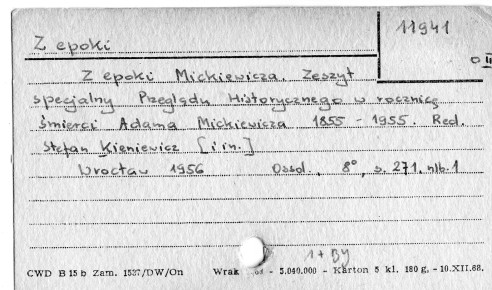 11941
Z epoki
Z epoki Mickiewicza. Zeszyt
specjalny Przeglądu Historycznego w rocznicę
śmierci Adama Mickiewicza 1855 - 1955. Red.
Stefan Kieniewicz [i in.]
Wrocław 1956 Ossol., 8°, s. 271, nlb. 1
1 + BJ
CWD B 15 b Zam. 1527/DW/On Wrak - 5.040.000 - Karton 5 kl. 180 g. - 10.XII.68.